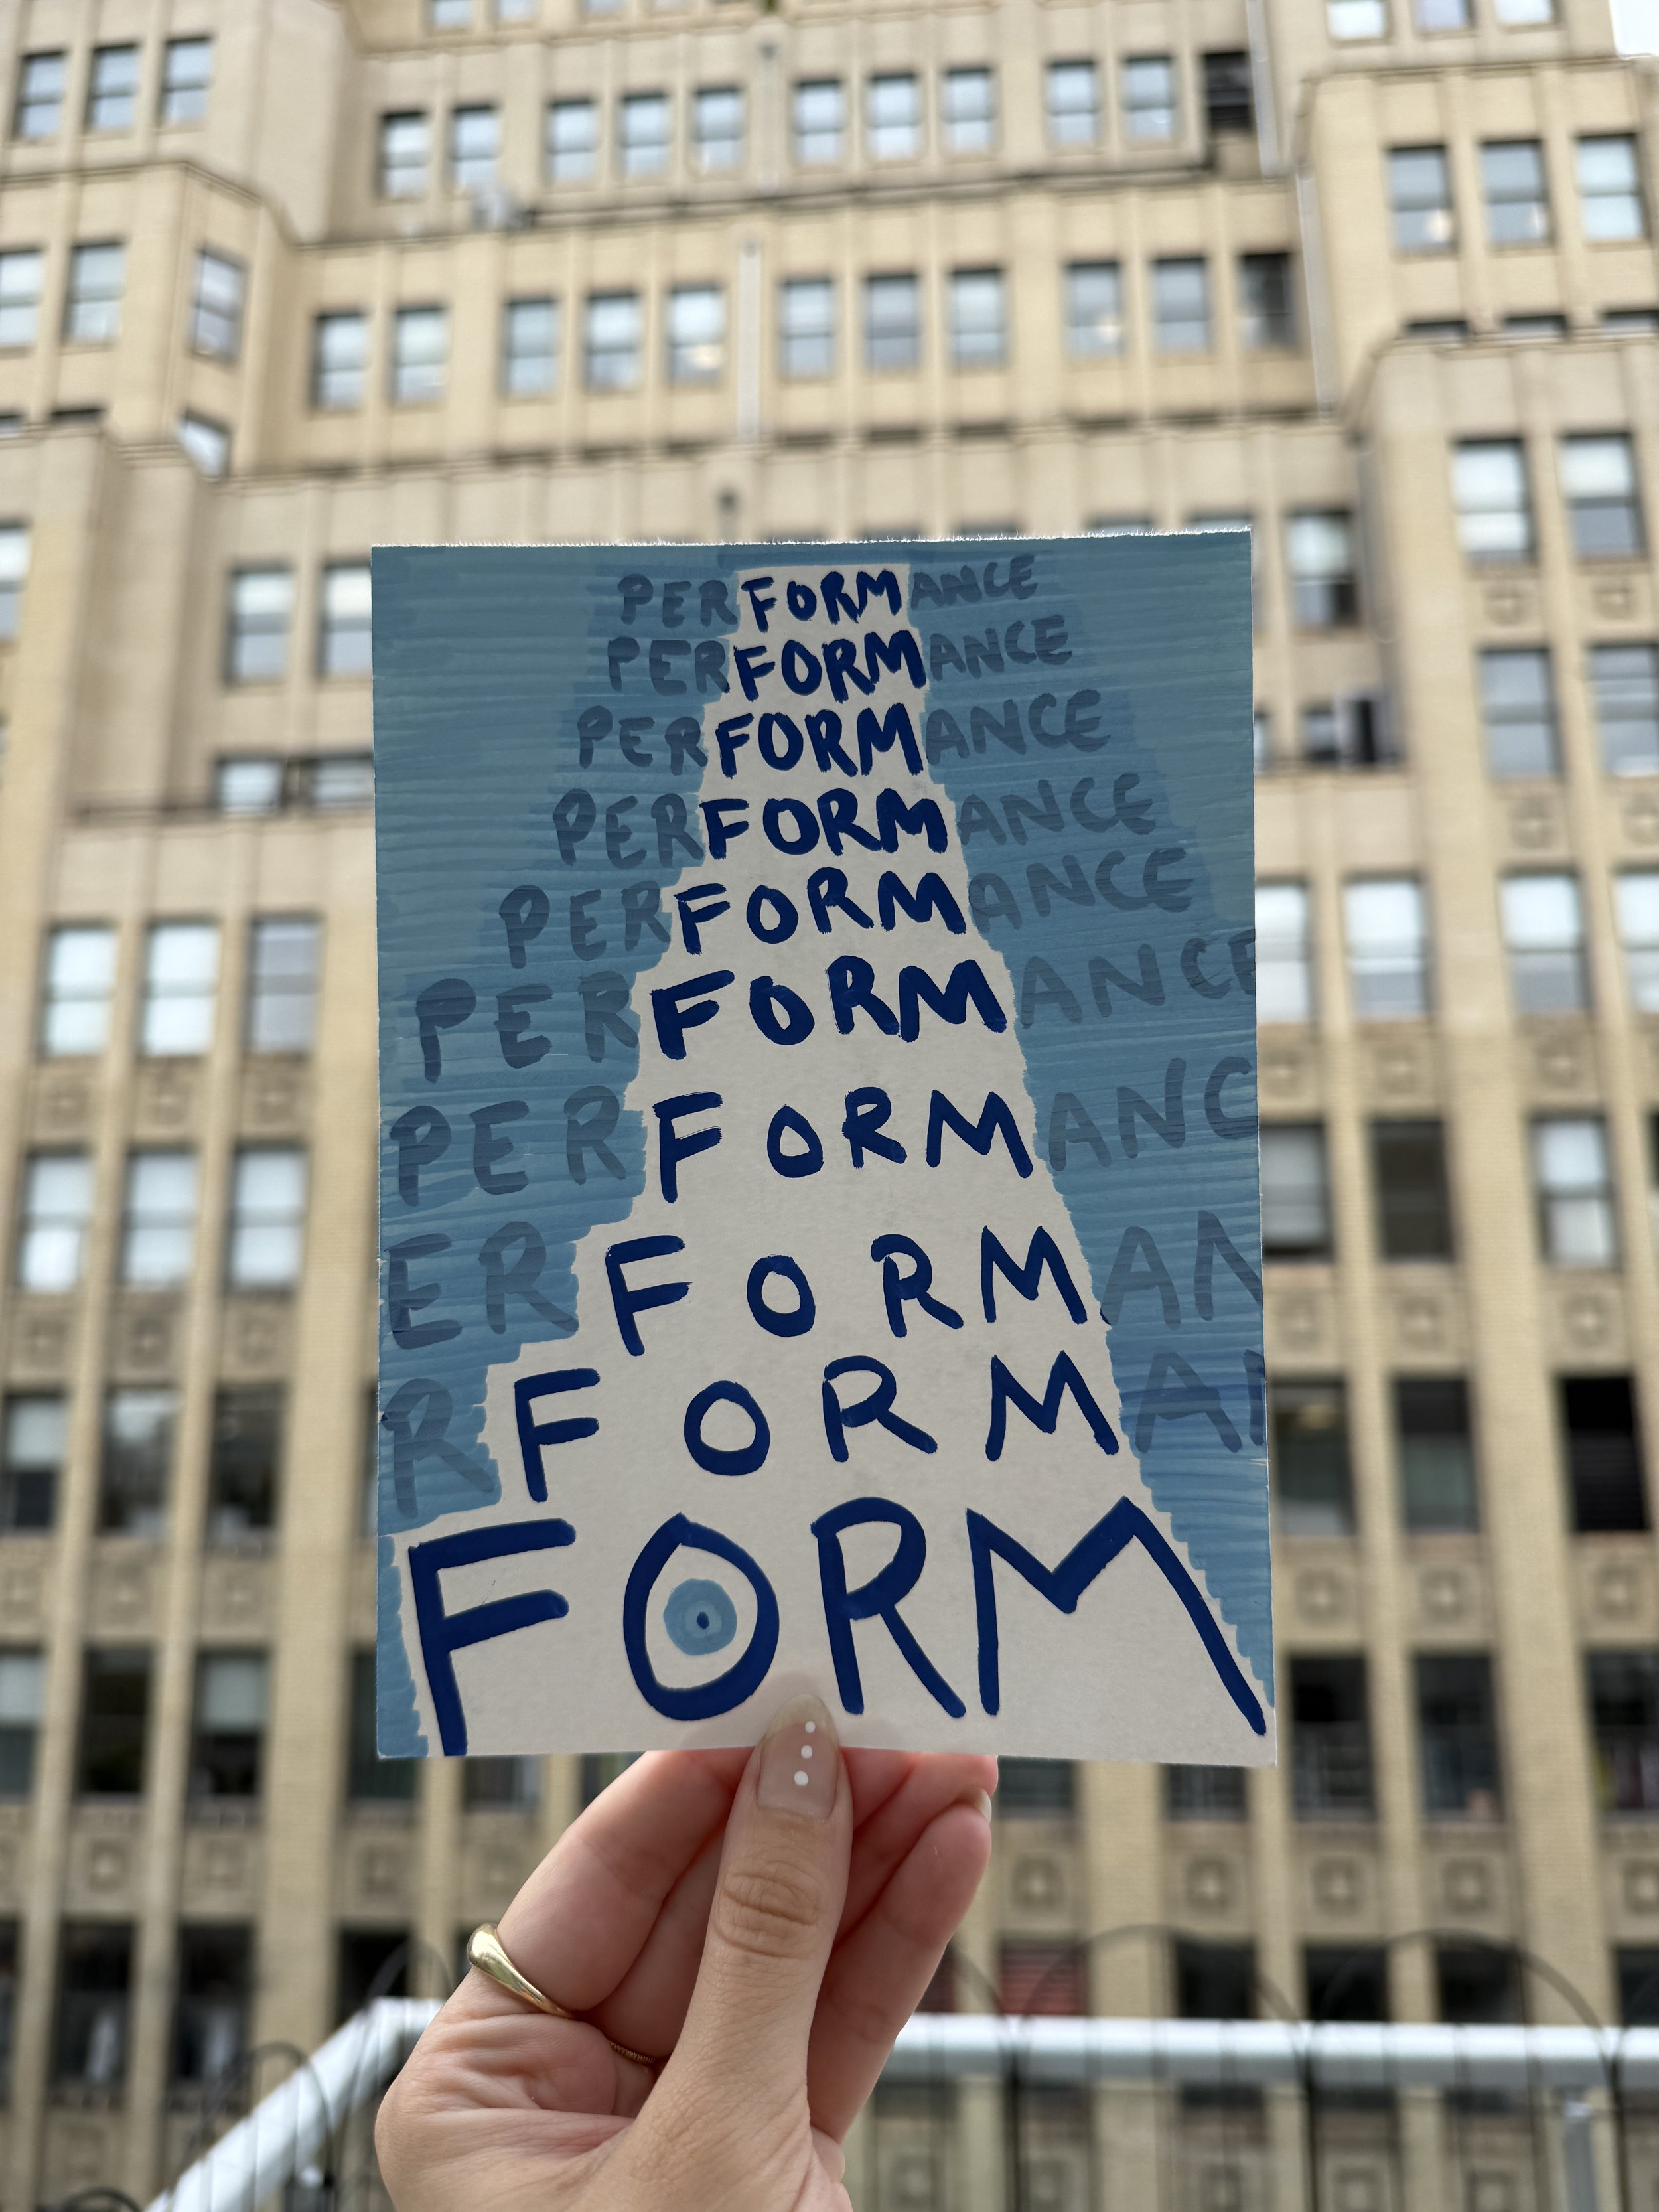 PERFORMANCE
PERFORMANCE
PERFORMANCE
PERFORMANCE
PERFORMANCE
PERFORMANCE
PERFORMANC
ERFORMAN
RFORMAN
FORM